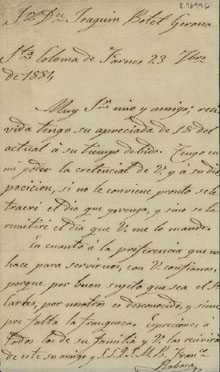 Sr. Dn. Joaquin Botet Gerona
Sta. Coloma de Farnes 23 7bre
de 1884
Muy Sr. mio y amigo; reci
vida tengo su apreciada de 18 del
actual á su tiempo debido. Tengo en
mi poder la credencial de V. y á su dis
posicion, si no le conviene pronto se la
traeré el dia que yo venga, y sino se la
remitiré el dia que V. me lo mande.
En cuanto á la preferencia que nos
hace para servirnos, con V. confiamos,
porque por buen sujeto que sea el Sr.
por nosotros es desconocido, y siem
pre falta la franqueza. Espreciones á
todos los de su familia y V. las recivirá
de este su amigo y S.S.Q.B.S.M. Fran.co